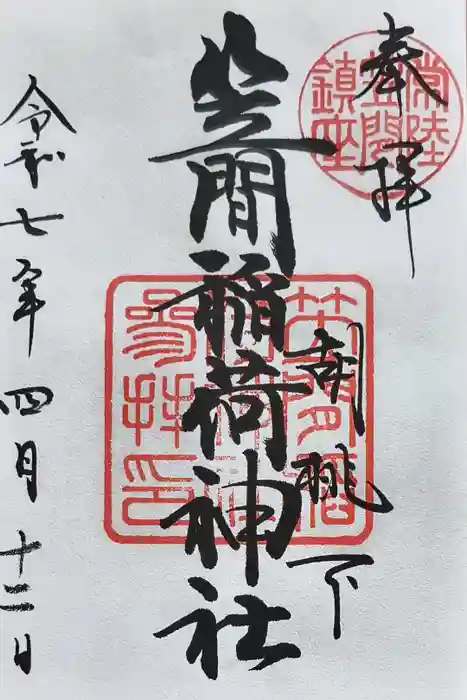 奉拝
常陸
笠間
鎮座
胡桃下
笠間稲荷神社
笠間稲
参拝印
令和七年四月十二日